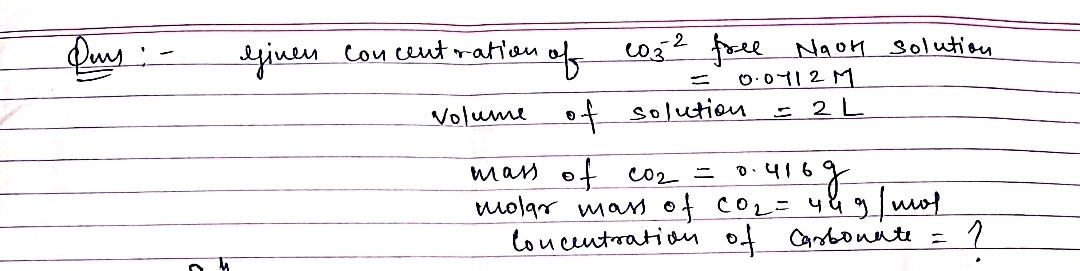 Qus : - Given concentration of CO3^-2 free NaOH solution
= 0.0712 M
Volume of solution = 2 L
mass of CO2 = 0.416 g
molar mass of CO2 = 44 g/mol
Concentration of Carbonate = ?